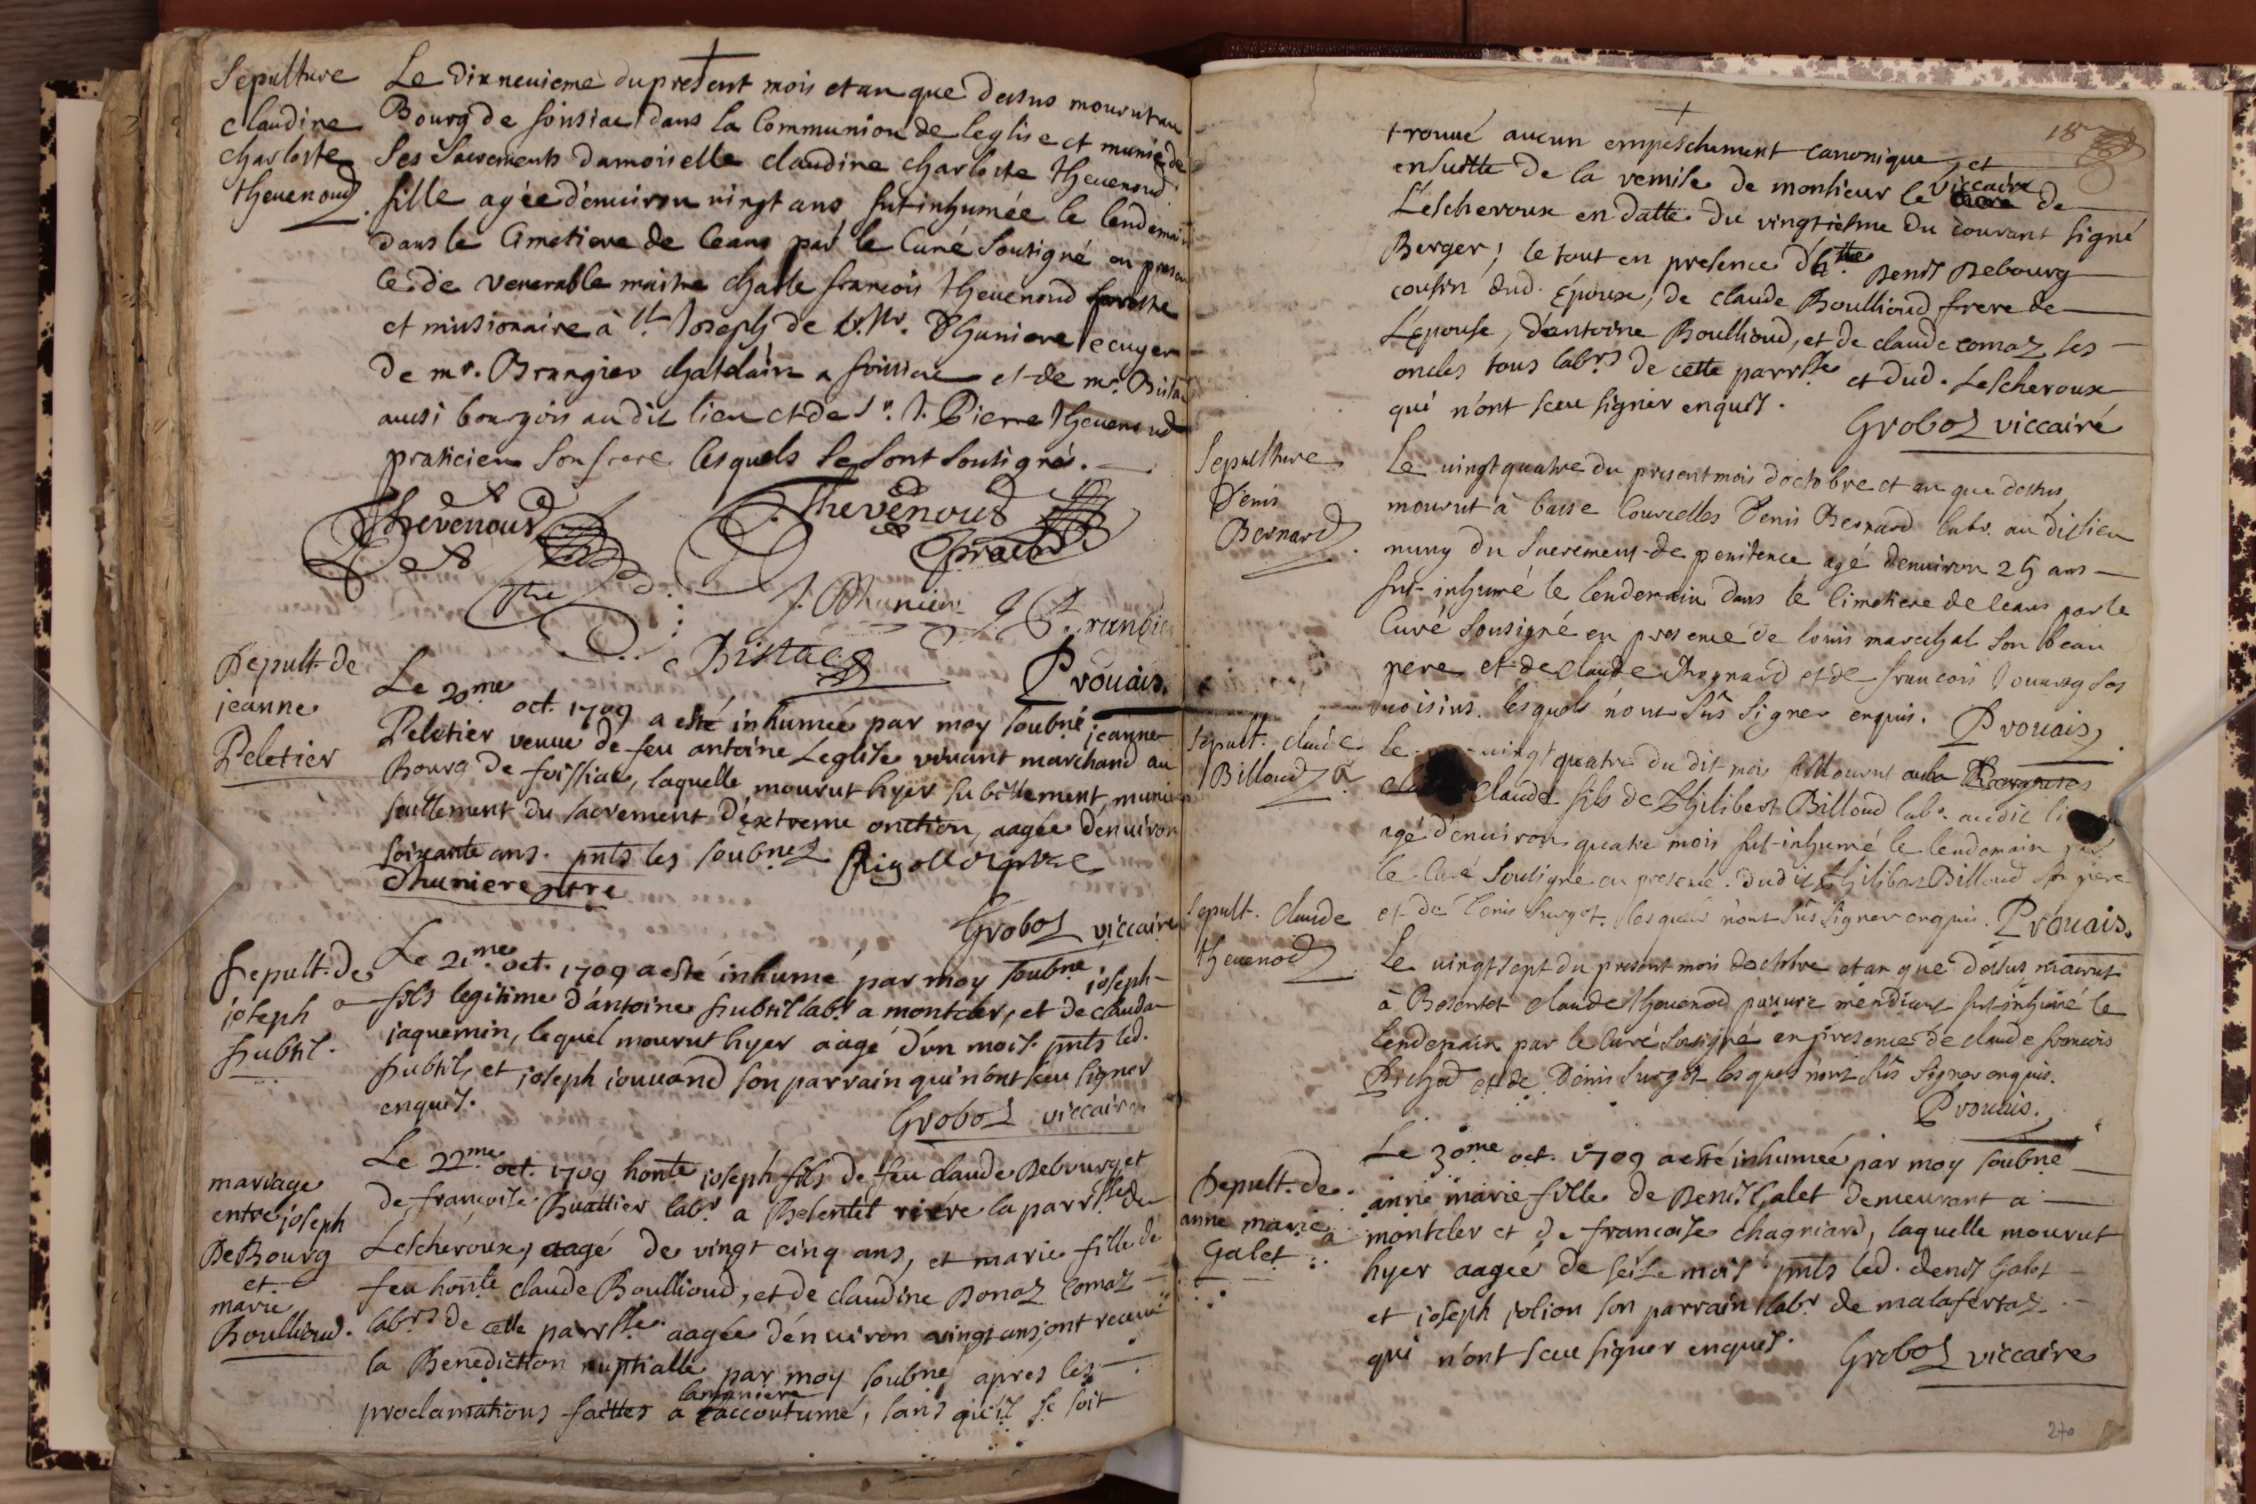 Sepulture
claudine
charlotte
thevenoud.
Le dixneuieme du present mois et an que dessus mourut au
Bourg de foissiac dans la Communion de leglise et munie de
ses sacrements damoiselle claudine charlotte thevenoud
fille agée d'enuiron vingt ans fut inhumée le lendemain
dans le Cimetiere de ceans par le Curé soussigné en presen
ce de venerable maitre charle francois thevenoud prestre
et missionaire à st Joseph de Dhuniere ecuyer
de mr. Brangier chatelain a foissiac et de mr. Bistac
aussi bourgois au dit lieu et de sr. J. Pierre thevenoud
praticien son frere lesquels se sont soussignés.
Thevenoud
Thevenoud
ptre
J. Dhuniere
J. Brangier
Bistac
Prouais.
Sepult. de
jeanne
Peletier
Le 20.me oct. 1709 a esté inhumée par moy soubné jeanne
Peletier veuue de feu antoine Leglise viuant marchand au
Bourg de foissiac, laquelle mourut hyer subittement, munie
seullement du sacrement d'extreme onction, aagée d'enuiron
soixante ans. pnts les soubnez Rigollet ptre
dhuniere ptre
Groboz viccaire
Sepult. de
joseph
subtil.
Le 21.me oct. 1709 a esté inhumé par moy soubne joseph
fils legitime d'antoine subtil labr a montcler, et de clauda
jaquemin, lequel mourut hyer aagé d'un mois. pnts led.
subtil, et joseph jouuand son parrain qui n'ont sceu signer
enquis.
Groboz viccaire
mariage
entre joseph
DeBourg
et
marie
Boullioud.
Le 22.me oct. 1709 honte joseph fils de feu claude Debourg et
de francoise Buattier labr a Besentet riére la parrsse de
Lescheroux, aagé de vingt cinq ans, et marie fille de
feu honte claude Boullioud, et de claudine Donaz comaz
labrs de cette parrsse aagée d'enuiron vingt ans, ont receu
la Benediction nuptialle par moy soubné apres les
lamaniere
proclamations faittes a l'accoutumé, sans qu'il se soit
18
trouué aucun empeschement canonique, et
ensuitte de la remise de monsieur le viccaire de
Lescheroux en datte du vingtiesme du courant signé
Berger; le tout en presence d'hte Denis Debourg
cousin dud. Époux, de claude Boullioud frere de
L'epouse, d'antoine Boullioud, et de claude comaz ses
oncles tous labrs de cette parrsse et dud. Lescheroux
qui n'ont sceu signer enquis.
Groboz viccaire
Sepulture
Denis
Bernard.
Le vingt quatre du present mois d'octobre et an que dessus
mourut à basse Courcelles Denis Bernard labr. au dit lieu
muny du sacrement de penitence agé d'enuiron 25 ans
fut inhumé le lendemain dans le Cimetiere de ceans par le
Curé sousigné en presence de louis marechal son beau
pere et de claude Chagnard et de francois Jouuang ses
voisins. lesquels n'ont sus signer enquis.
Prouais.
Sepult. claude
Billoud
Le vingt quatre du dit mois mourut
claude fils de Philibert Billoud labr. audit lieu
agé d'enuiron quatre mois fut inhumé le lendemain par
le Curé sousigné en presence dudit Philibert Billoud son pere
et de Denis surgot. lesquels n'ont sus signer enquis. Prouais.
Sepult. claude
thevenod
Le vingtsept du present mois doctobre et an que dessus mourut
à Besentet claude thevenod pauure mendiant fut inhumé le
lendemain par le Curé sousigné en presence de claude francois
Pichod et de Denis surgot lesquels n'ont sus signer enquis.
Prouais.
Sepult. de
anne marie
Galet.
Le 30me oct. 1709 a esté inhumée par moy soubné
anne marie fille de Denis Galet demeurant a
montcler et de francoise chagniard, laquelle mourut
hyer aagée de seize mois pnts led. denis Galet
et joseph jolion son parrain labr de malafertaz
qui n'ont sceu signer enquis.
Groboz viccaire
270